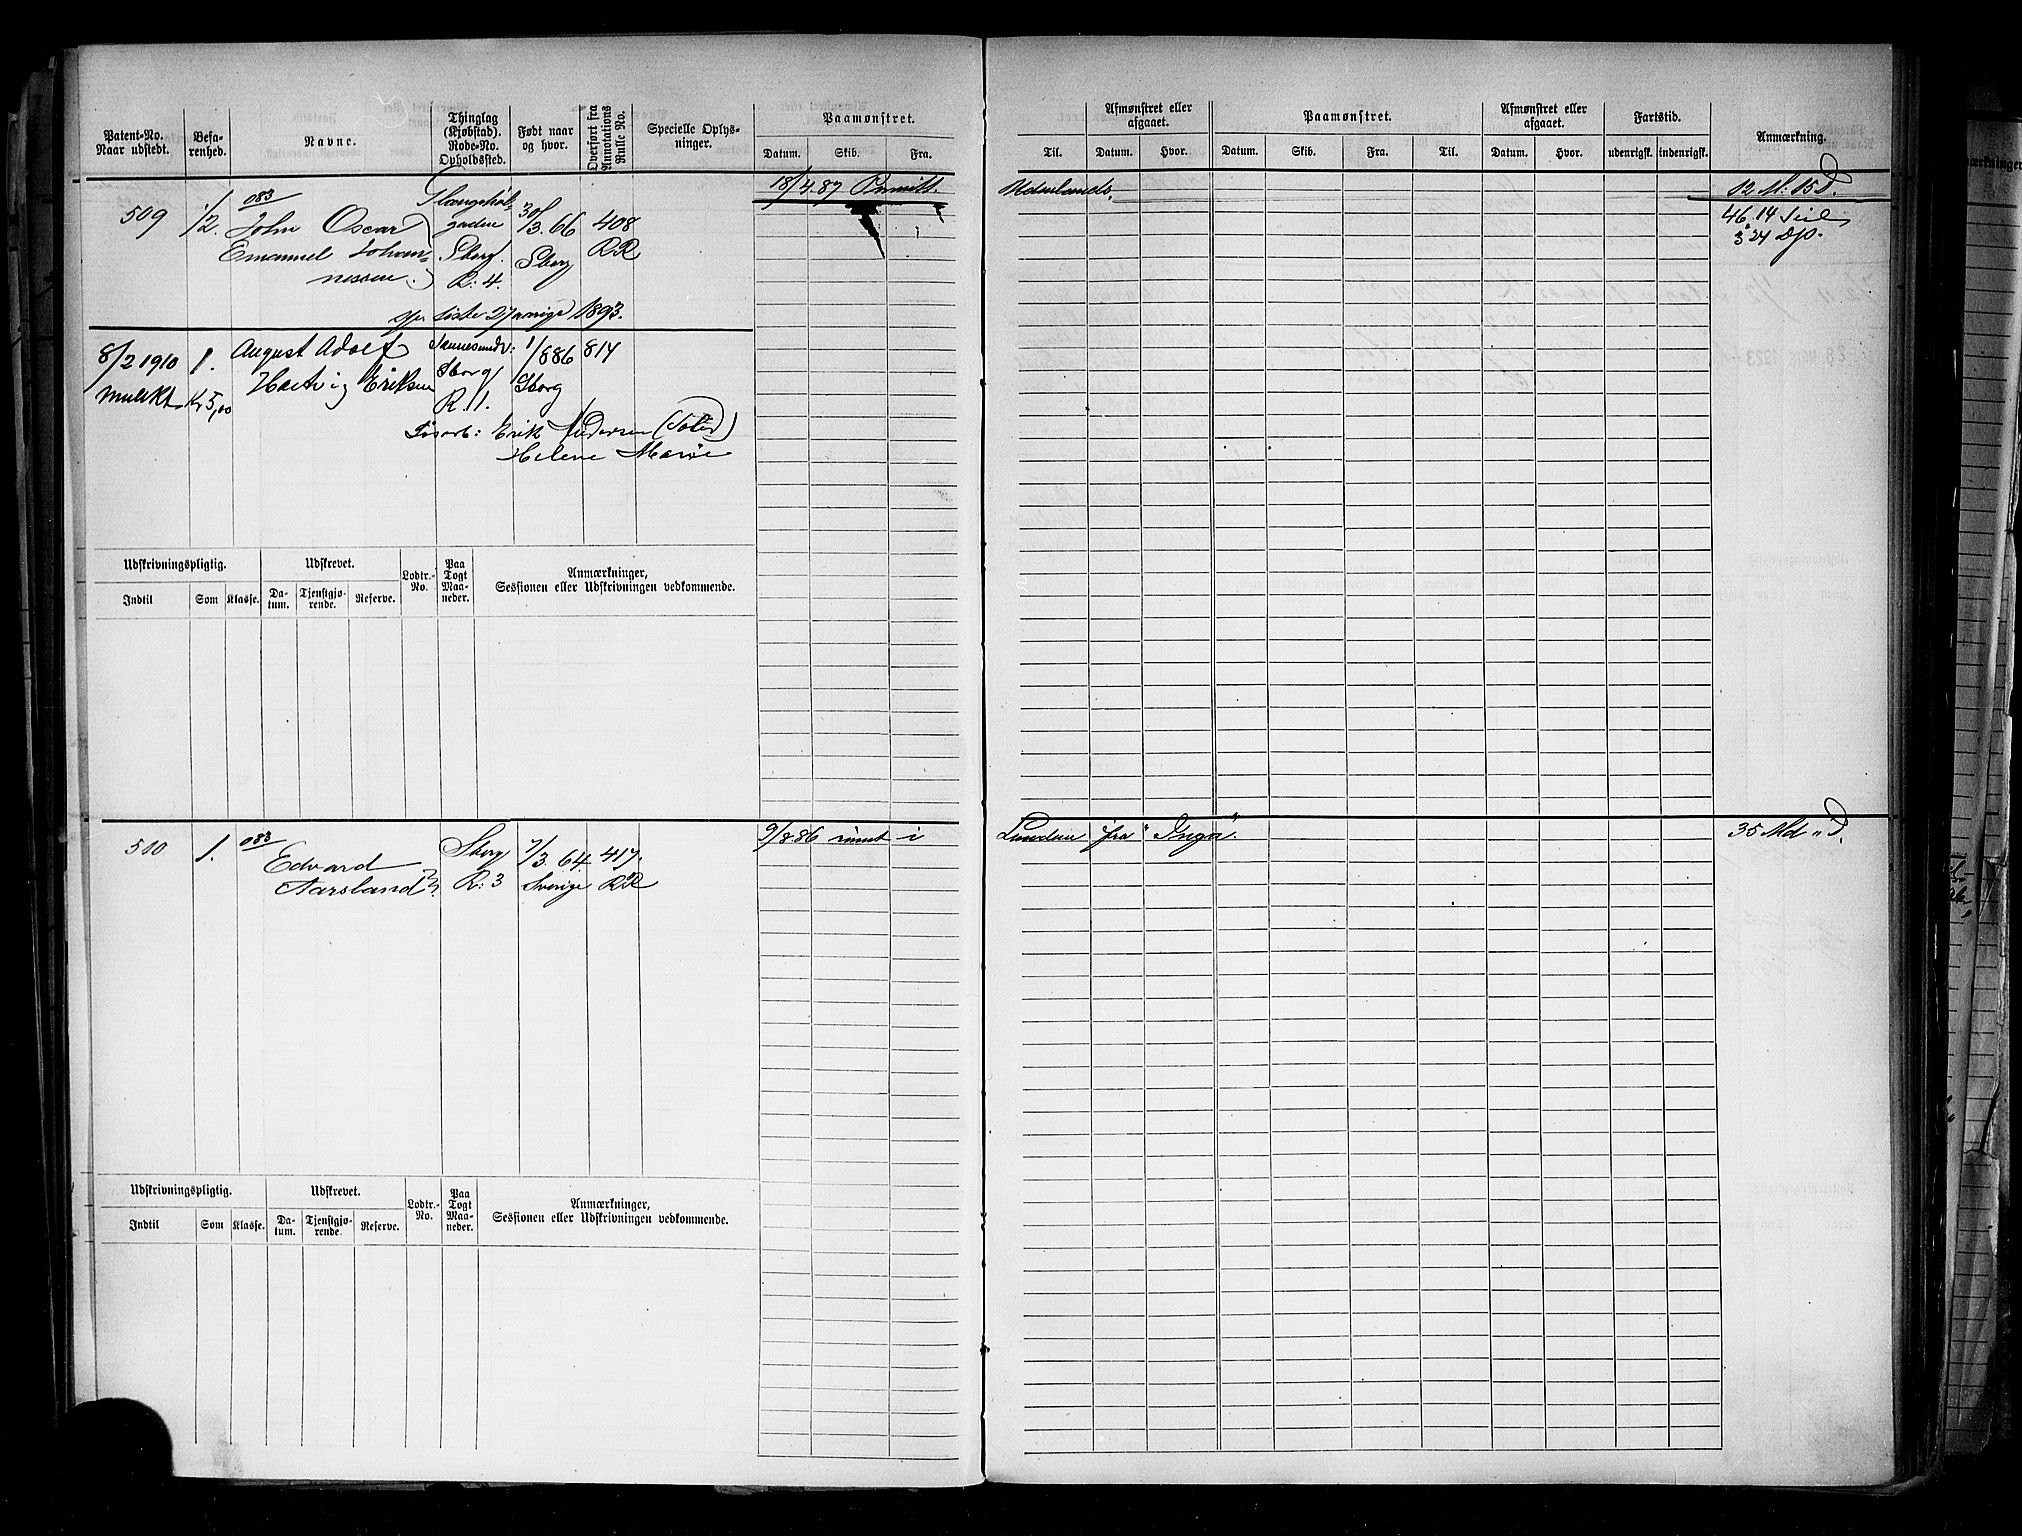 Patent-No. Naar udstedt.
Befarenhed.
Navne.
Thinglag (Kjøbstad). Rode-No. Opholdssted.
Født naar og hvor.
Overført fra Annotations Rulle No.
Specielle Oplysninger.
Paamønstret.
Datum. Skib. Fra.
Til.
Afmønstret eller afgaaet.
Datum. Hvor.
Paamønstret.
Datum. Skib. Fra. Til.
Afmønstret eller afgaaet.
Datum. Hvor.
Fartstid.
udenrigsk. indenrigsk.
Anmærkning.
083
18/4.87
12 M: 15 D.
509 1/2. John Oscar gaden 30/3.66 408
46.14 Seil
Emanuel Johan- Sberg. Sberg RR
3 24
nessen. R: 4.
liste 1893.
8/2 1910 1. August Adolf 1/886 814
mulkt Kr 5,00 Eriksen Sborg Sborg
R. 1.
Erik Andersen
Helene Marie
Udskrivningspligtig. Udskrevet. Lodtr.-No. Paa Togt Maaneder. Anmærkninger, Sessionen eller Udskrivningen vedkommende.
Indtil Som Klasse. Datum. Tjenstgjørende. Reserve.
500 1. 083 Sberg 7/3.64. 417. 9/8.86 rømt i
London fra "Inga".
35 Md " D.
Edward
Aarsland R: 3 Sverige RR
Udskrivningspligtig. Udskrevet. Lodtr.-No. Paa Togt Maaneder. Anmærkninger, Sessionen eller Udskrivningen vedkommende.
Indtil Som Klasse. Datum. Tjenstgjørende. Reserve.